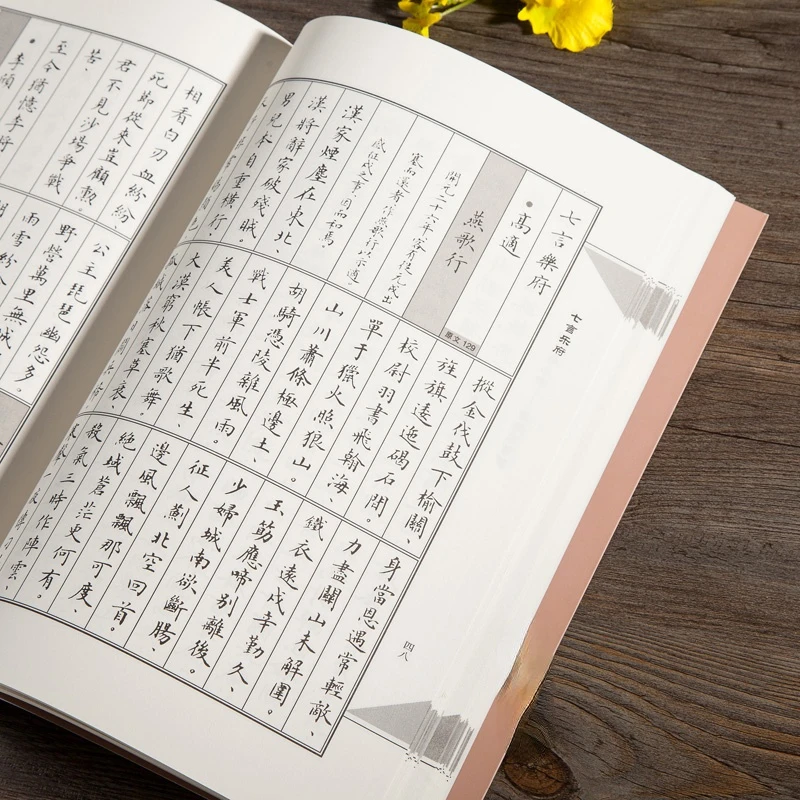 七言樂府
高適
燕歌行
景文 129
開元二十六年客有從元戎出
塞而還者作燕歌行以示適
感征戍之事因而和焉。
漢家煙塵在東北、
漢將辭家破殘賊。
男兒本自重橫行、
摐金伐鼓下榆關、
旌旗逶迤碣石間。
校尉羽書飛翰海、
單于獵火照狼山。
山川蕭條極邊土、
胡騎憑陵雜風雨。
戰士軍前半死生、
美人帳下猶歌舞。
大漠窮秋塞草衰、
身當恩遇常輕敵、
力盡關山未解圍。
鐵衣遠戍辛勤久、
玉筯應啼別離後。
少婦城南欲斷腸、
征人薊北空回首。
邊風飄飄那可度、
絕域蒼茫更何有。
殺氣三時作陣雲、
七言乐府
四八
相看白刃血紛紛、
死節從來豈顧勳。
君不見沙場爭戰
苦、
至今猶憶李將
李頎
公主琵琶幽怨多。
野營萬里無城
雨雪紛